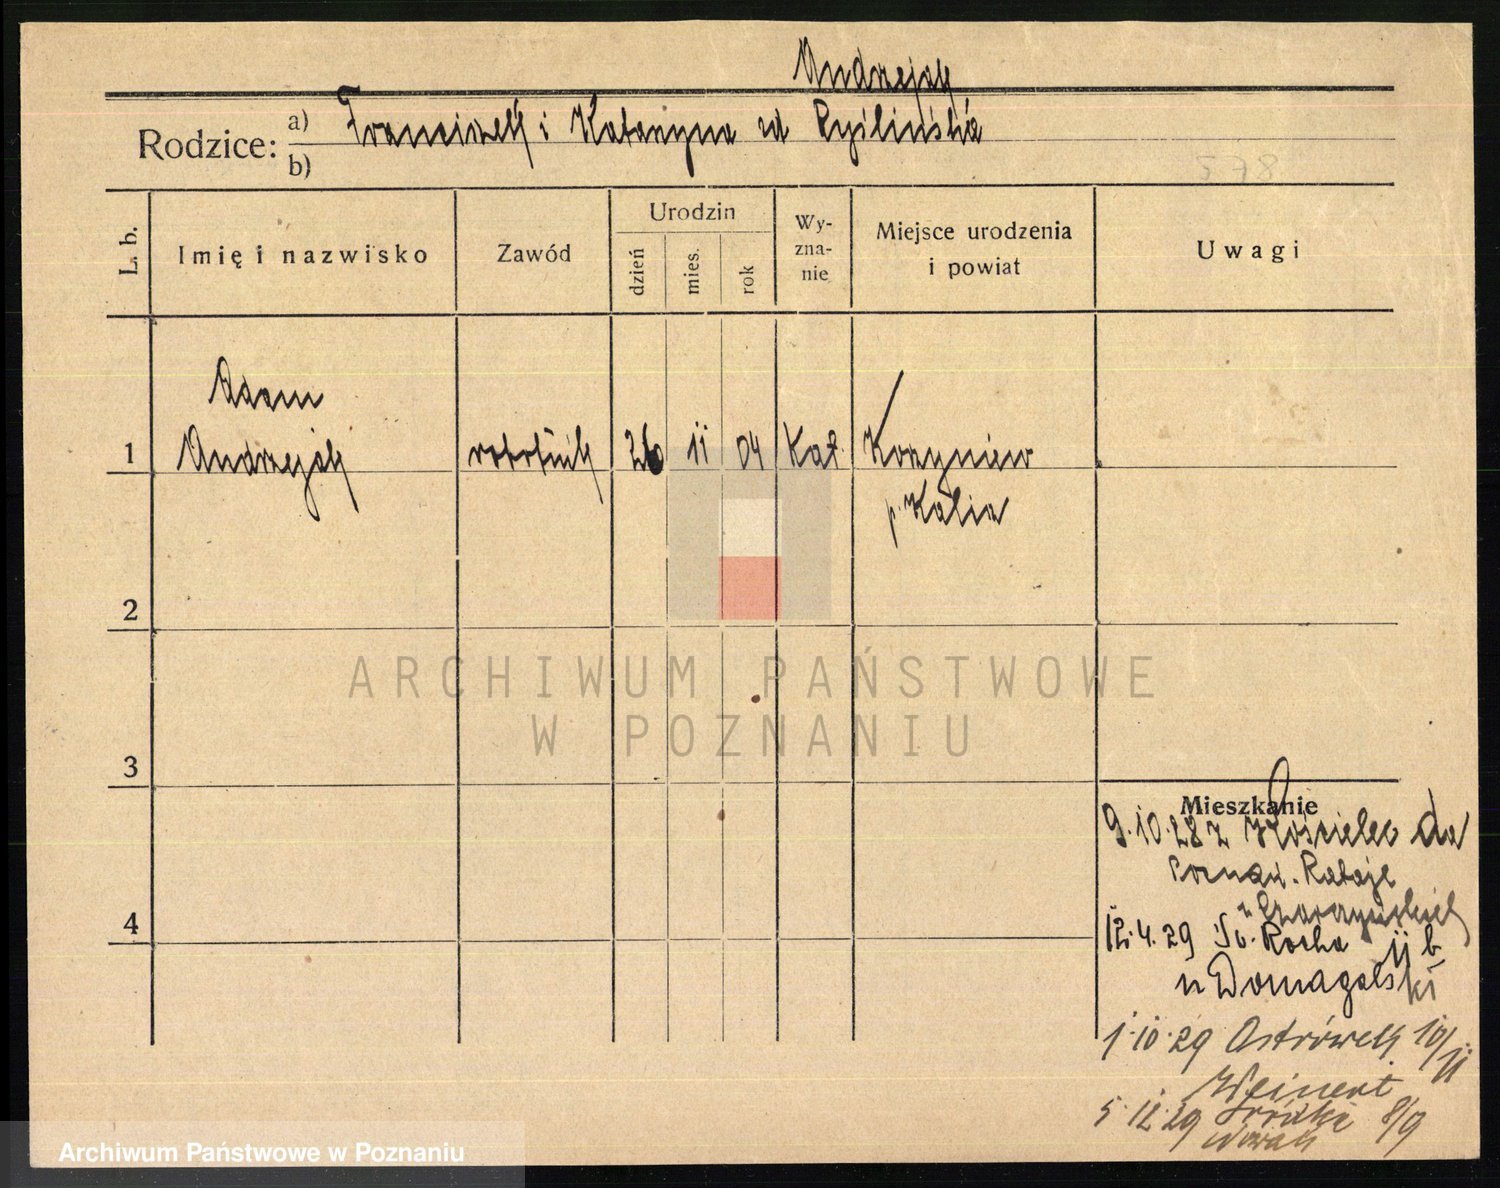 Andrzejak
Rodzice: a) Franciszek i Katarzyna zd
b)
578
L. b.
Imię i nazwisko
Zawód
Urodzin
dzień
mies.
rok
Wy-
zna-
nie
Miejsce urodzenia
i powiat
Uwagi
Adam
1 Andrzejak robotnik 26 11 04 Kat. Koryniew
p.
2
3
4
Mieszkanie
9.10.28 z Kościelec do
Poznań. Rataje
12.4.29 Św. Rocha 11 b
u Domagalski
1.10.29 Ostrówek 10/11
Weinert
5.12.29 Śródka 8/9
Nowak
ARCHIWUM PAŃSTWOWE
W POZNANIU
Archiwum Państwowe w Poznaniu